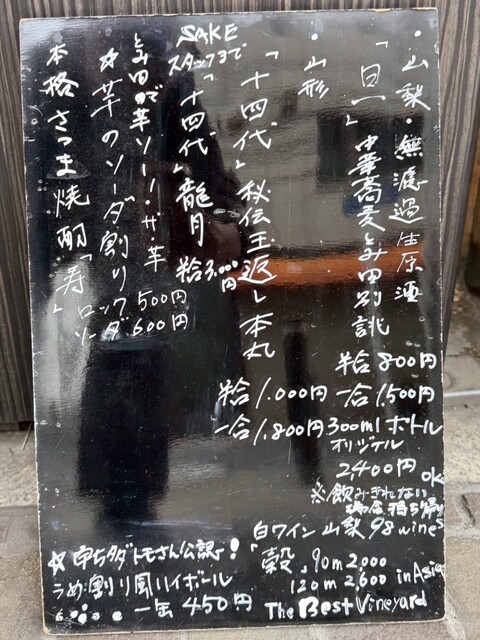 ・山梨・無濾過生原酒
「日一」中華蕎麦とみ田別誂
半合800円
一合1,500円
300mlボトル
オリジナル
2,400円 OK
※飲みきれない
場合持ち帰り
・山形
「十四代」秘伝玉返し本丸
半合1,000円
一合1,800円
SAKE
スタッフまで
「十四代」龍月
半合3,000円
とみ田で芋ソーソー・ザ・芋
☆芋のソーダ割り
本格さつま焼酎「寿」
ロック500円
ソーダ600円
白ワイン 山梨 98wines
「穀」90m 2,000
120m 2,600 in Asia
The Best Vineyard
☆申ちダトモさん公認!
うめ割り風ハイボール
一缶 450円